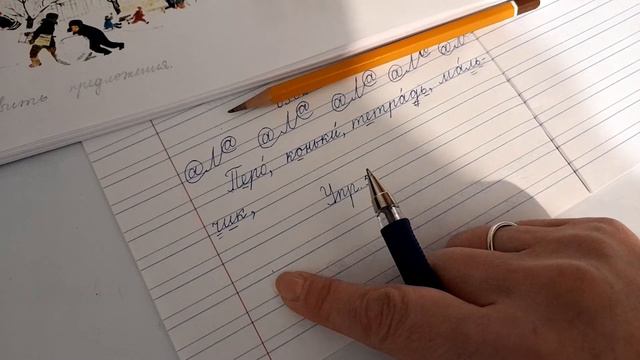 вить предложения.
@Л@ @Л@ @Л@ @Л@ @Л@
Перо́, коньки́, тетра́дь, ма́ль-
чик,
Упр.